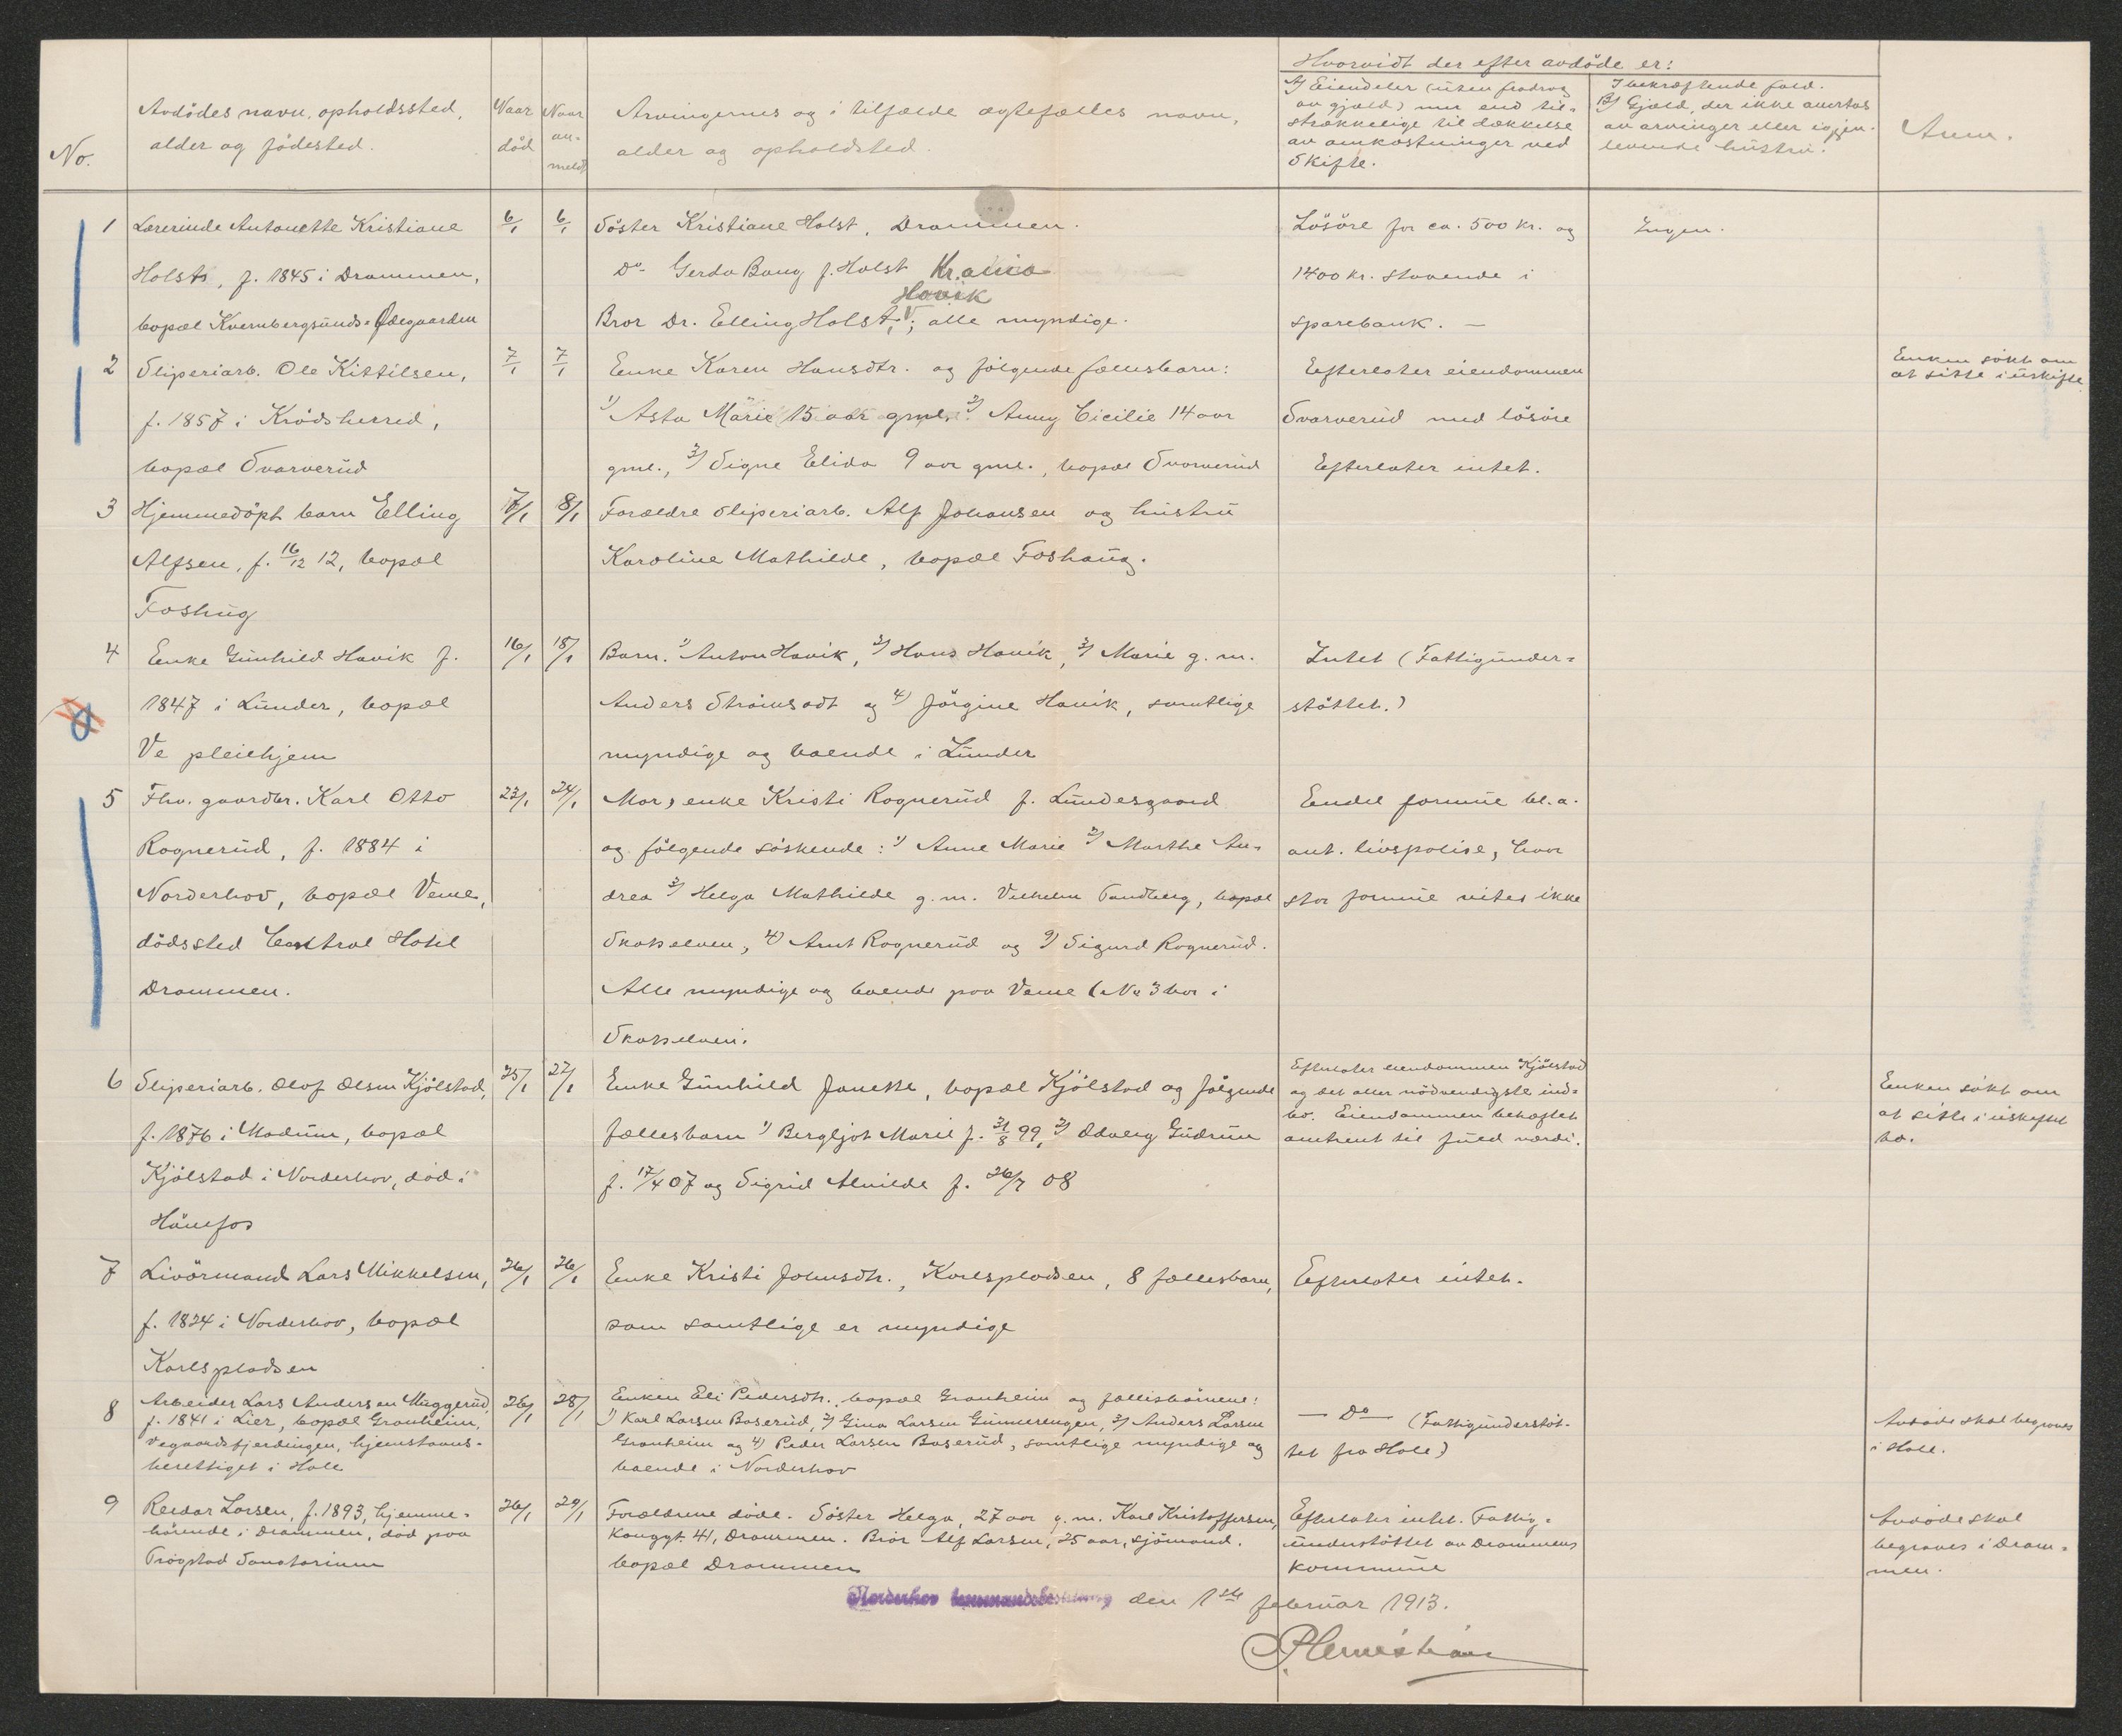 Hvorvidt der efter avdöde er:
No.
Avdödes navn, opholdssted,
alder og födested.
Naar
död
Naar
an-
meldt
Arvingernes og i tilfælde ægtefælles navn,
alder og opholdsted.
A) Eiendeler (uten fradrag
av gjæld) mer end til-
strækkelige til dækkelse
av omkostninger ved
Skifte.
I bekræftende fald.
B) Gjæld, der ikke overtas
av arvinger eller igjen-
levende hustru.
Anm.
1
Lærerinde Antonette Kristiane
Holst, f. 1845 i Drammen,
bopæl Kvernbergsunds-Ødegaarden
6/1
6/1
Söster Kristiane Holst, Drammen.
Do Gerda Bang f. Holst Kr.ania
Havik
Bror Dr. Elling Holst, ; alle myndige.
Lösöre for ca. 500 kr. og
1400 kr. staaende i
sparebank. —
Ingen.
2
Sliperiarb. Ole Kittilsen,
f. 1857 i Krödsherred,
bopæl Svarverud
7/1
7/1
Enke Karen Hansdtr. og fölgende fællesbarn:
1) Asta Marie 15 aar gml. 2) Anny Cicilie 14 aar
gml., 3) Signe Elida 9 aar gml., bopæl Svarverud
Efterlater eiendommen
Svarverud med lösöre
Efterlater intet.
Enken sökt om
at sitte i uskifte
3
Hjemmedöpt barn Elling
Alfsen, f. 16/12 12, bopæl
Foshug
7/1
8/1
Forældre sliperiarb. Alf Johansen og hustru
Karoline Mathilde, bopæl Foshaug.
4
Enke Gunhild Havik f.
1847 i Lunder, bopæl
Ve pleiehjem
16/1
18/1
Barn. 1) Anton Havik, 2) Hans Havik, 3) Marie g. m.
Anders Strömsodt og 4) Jörgine Havik, samtlige
myndige og boende i Lunder
Intet (Fattigunder-
støttet.)
5
Fhv. gaardbr. Karl Otto
Rognerud, f. 1884 i
Norderhov, bopæl Veme,
dödssted Central Hotel
Drammen.
23/1
24/1
Mor, enke Kristi Rognerud f. Lundesgaard
og fölgende söskende: 1) Anne Marie 2) Marthe An-
drea 3) Helga Mathilde g. m. Vilhelm Tandberg, bopæl
Skotselven, 4) Arnt Rognerud og 9) Sigurd Rognerud.
Alle myndige og boende paa Veme (No 3 bor i
Skotselven.
Endel formue bl. a.
ant. livspolise, hvor
stor formue vites ikke
6
Sliperiarb. Olof Olsen Kjölstad,
f. 1876 i Modum, bopæl
Kjölstad i Norderhov, död i
Hönefos
25/1
27/1
Enke Gunhild Janette, bopæl Kjölstad og fölgende
fællesbarn 1) Bergljot Marie f. 31/8 99, 2) Odveig Gudrun
f. 17/4 07 og Sigrid Alvilde f. 26/7 08
Efterlater eiendommen Kjölstad
og det aller nödvendigste ind-
bo. Eiendommen beheftet
omtrent til fuld værdi.
Enken sökt om
at sitte i uskiftet
bo.
7
Livörmand Lars Mikkelsen,
f. 1824 i Norderhov, bopæl
Karlspladsen
26/1
26/1
Enke Kristi Johnsdtr., Karlspladsen, 8 fællesbarn,
som samtlige er myndige
Efterlater intet.
8
Arbeider Lars Andersen Muggerud,
f. 1841 i Lier, bopæl Granheim,
Vegaardsfjerdingen, hjemstavns-
berettiget i Hole
26/1
28/1
Enken Eli Pedersdtr. bopæl Granheim og fællesbörnene:
1) Karl Larsen Baserud, 2) Gina Larsen Gunnerengen, 3) Anders Larsen
Granheim og 4) Peder Larsen Baserud, samtlige myndige og
boende i Norderhov
— Do — (Fattigunderstöt-
tet fra Hole)
Avdöde skal begraves
i Hole.
9
Reidar Larsen, f. 1893, hjemme-
hörende i Drammen, död paa
Frogstad Sanatorium
26/1
29/1
Forældrene döde. Söster Helga, 27 aar g. m. Karl Kristoffersen,
Konggt. 41, Drammen. Bror Alf Larsen, 25 aar, sjömand.
bopæl Drammen
Efterlater intet. Fattig-
understöttet av Drammens
kommune
Avdöde skal
begraves i Dram-
men.
Norderhov lensmandsbestilling den 1ste februar 1913.